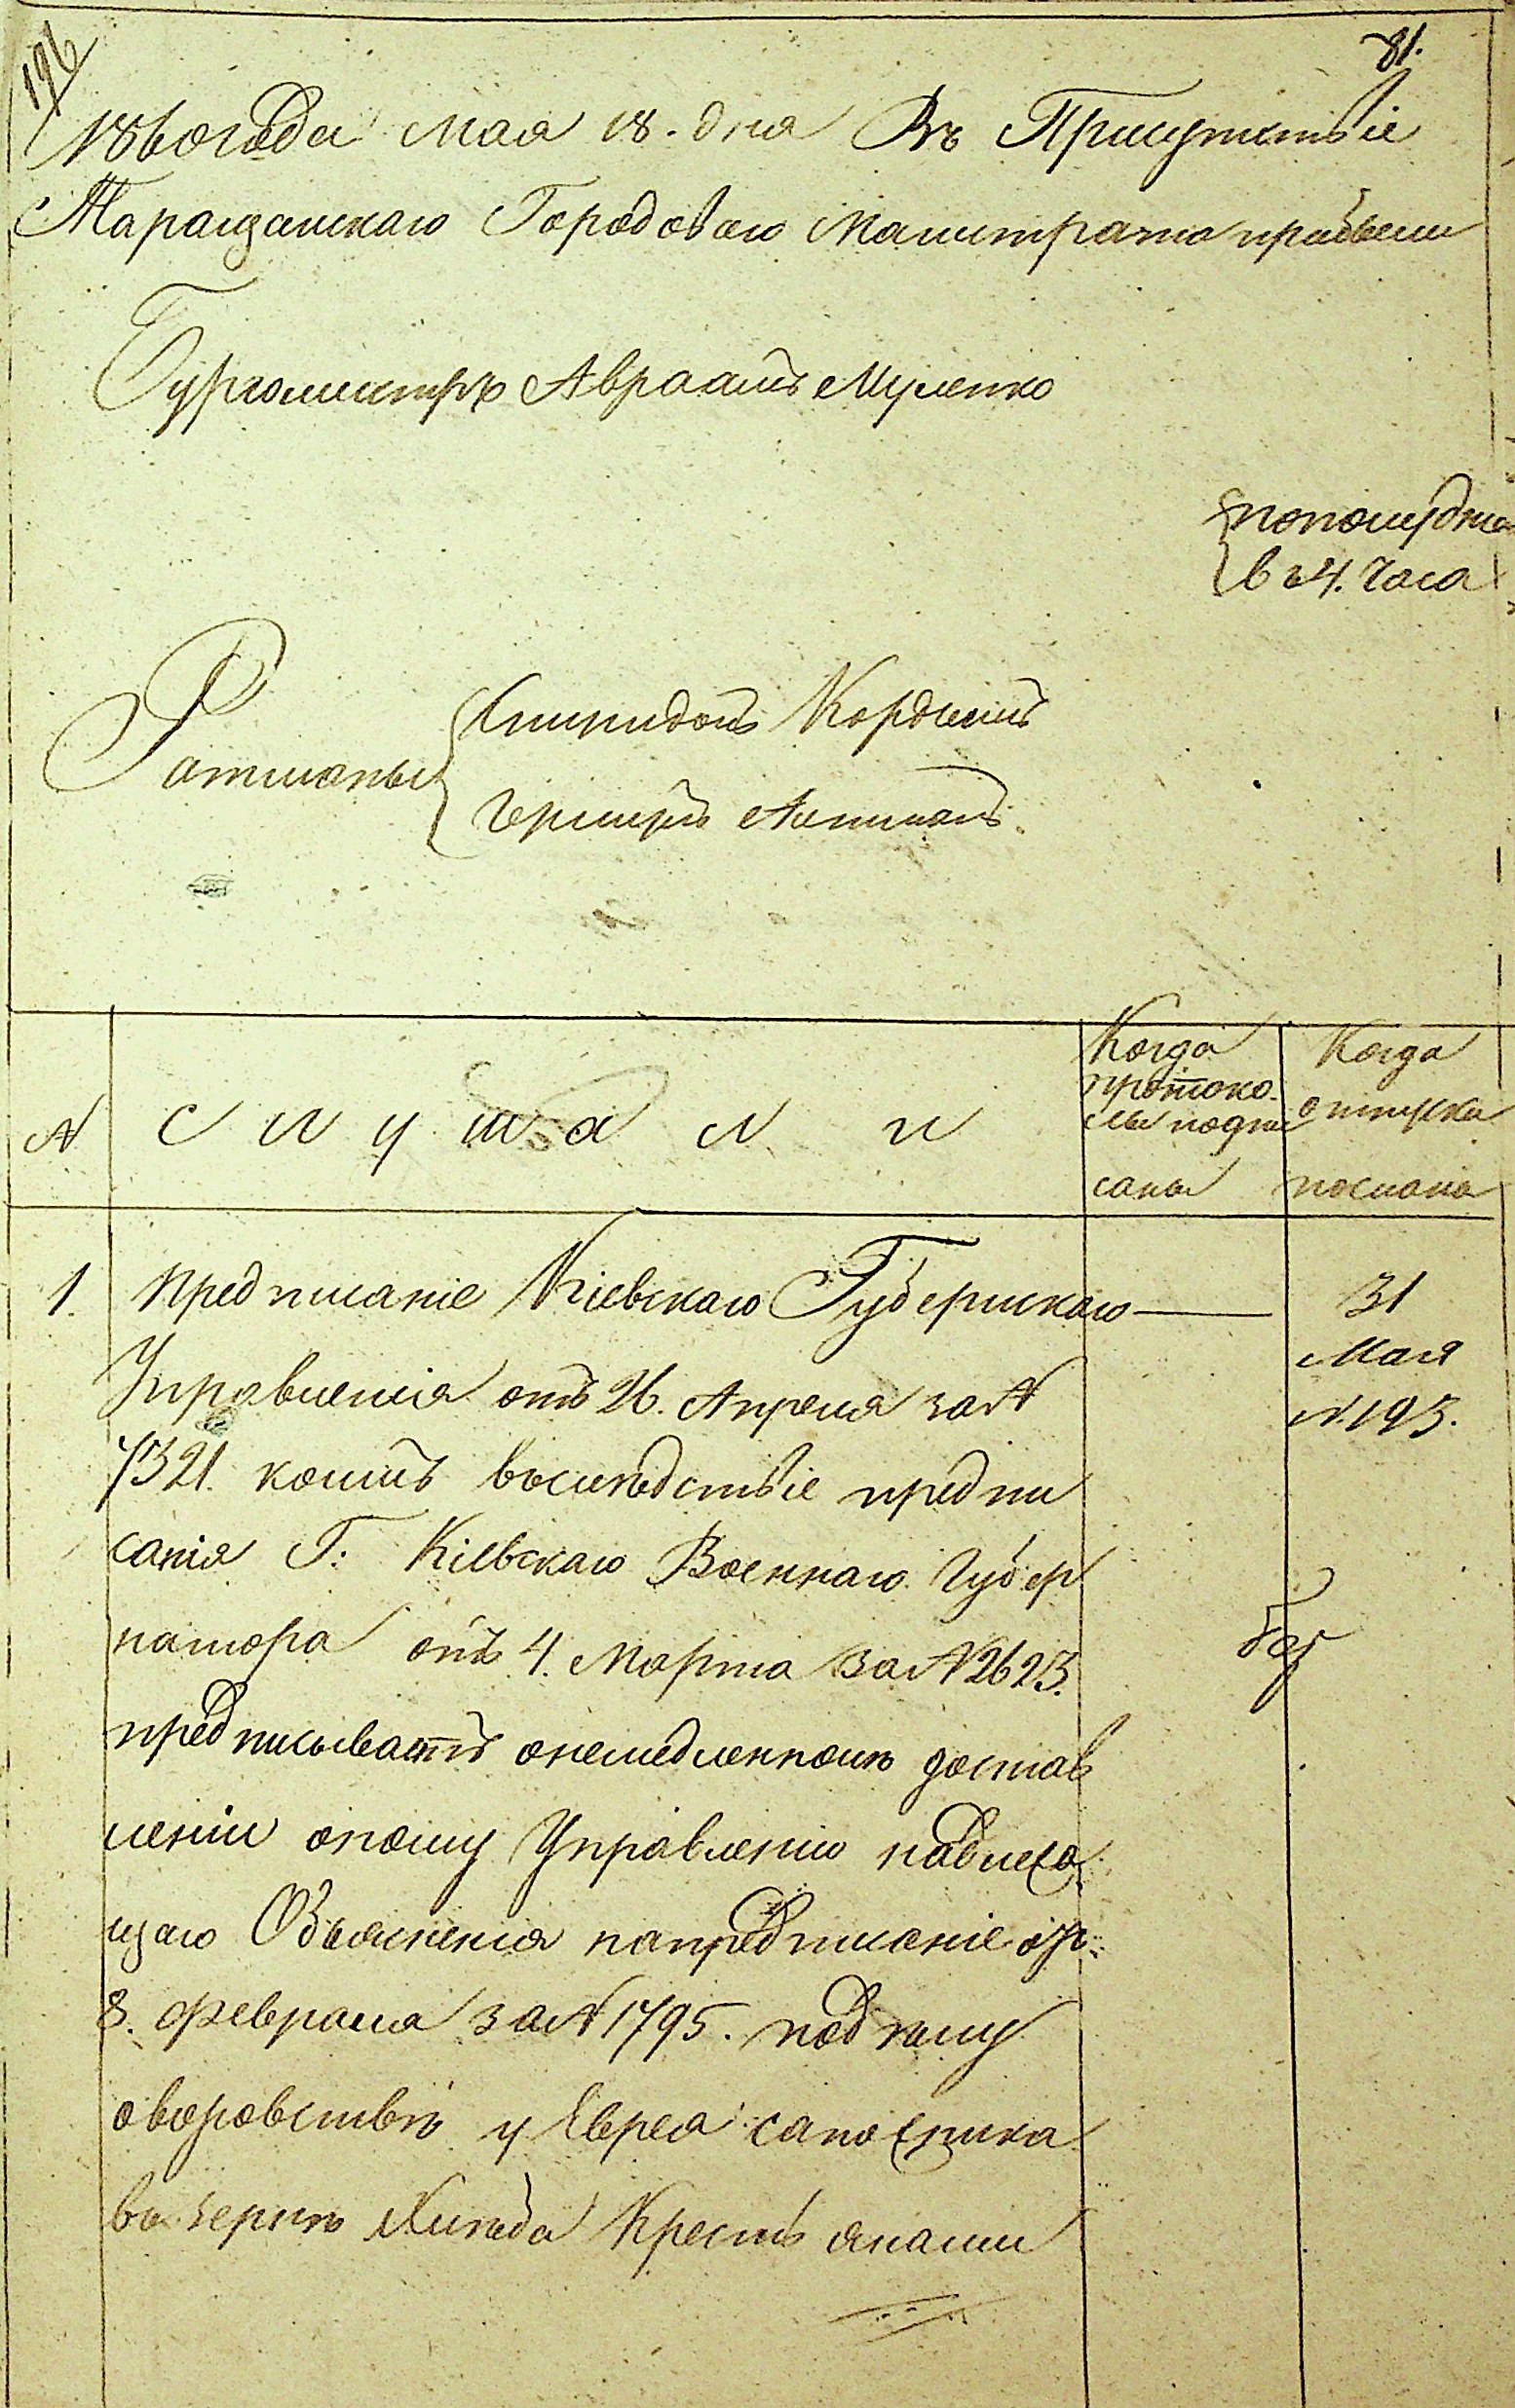 196
81.
1860 года Мая 18. дня Въ Присутствіе
Таращанскаго Городоваго Магистрата прибыли
Бургомистръ Авраамъ Муленко
пополудни
въ 4. часа
Ратманы
Спиридонъ
Гершунъ
№
Слушали
Когда
протоко-
лы подпи
саны
Когда
отпуска
послана
1. Предписаніе Кіевскаго Губернскаго
31
Мая
№ 193.
Управленія отъ 26. Апреля за №
7321. коимъ въслѣдствіе предпи
санія Г: Кіевскаго Военнаго Губер
натора отъ 4. Марта за № 2623.
предписываетъ онемедленномъ достав
леніи оному Управленію надлежа
щаго Объясненія напредписаніе отъ
8. Февраля за № 1795. под
оворовствѣ у Еврея сапожника
зернѣ Хлѣба Крестьянами